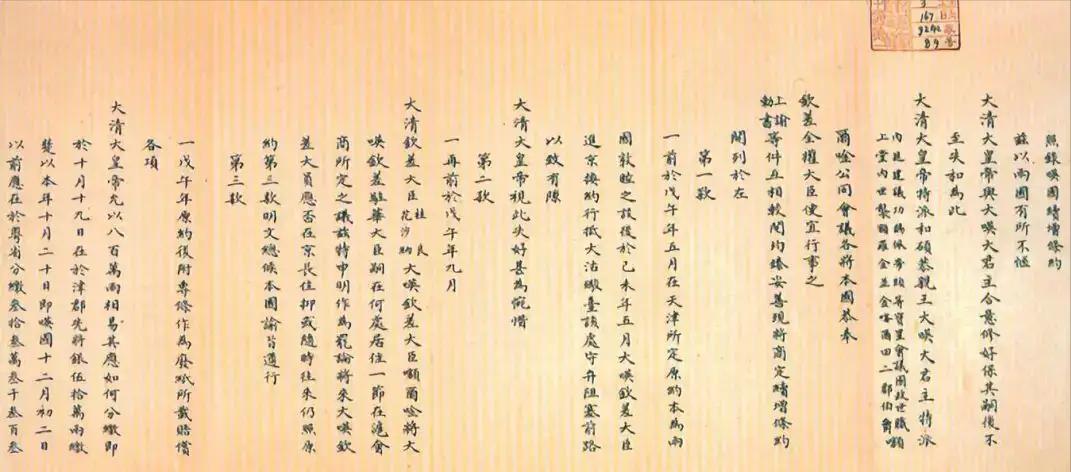 照錄暎國續增條約
茲以兩國有所不愜
大清大皇帝與大暎大君主合意修好保其嗣後不
至失和為此
大清大皇帝特派和碩恭親王大暎大君主特派
內廷建議功賜佩帶頭等寶星會議國政世職額
上堂內世襲額羅金並金喀爾田二郡伯爵
爾唫公同會議各將本國恭奉
欽差全權大臣便宜行事之
上諭敕書等件互相較閱均臻妥善現將商定續增條約
開列於左
第一款
一前於戊午年五月在天津所定原約本為兩
國敦睦之設後於己未年五月大暎欽差大臣
進京換約行抵大沽礮臺該處守弁阻塞前路
以致有隙
大清大皇帝視此失好甚為惋惜
第二款
一再前於戊午年九月
大清欽差大臣桂良花沙納大暎欽差大臣額爾唫將大
暎欽差駐華大臣嗣在何處居住一節在滬會
商所定之議茲特申明作為罷論將來大暎欽
差大員應否在京長住抑或隨時往來仍照原
約第三款明文總候本國諭旨遵行
第三款
一戊午年原約後附專條作為廢紙所載賠償
各項
大清大皇帝允以八百萬兩相易其應如何分繳即
於十月十九日在於津郡先將銀伍拾萬兩繳
楚以本年十月二十日即暎國十二月初二日
以前應在於粵省分繳叁拾叁萬叁千叁百叁
3
167
9242
89